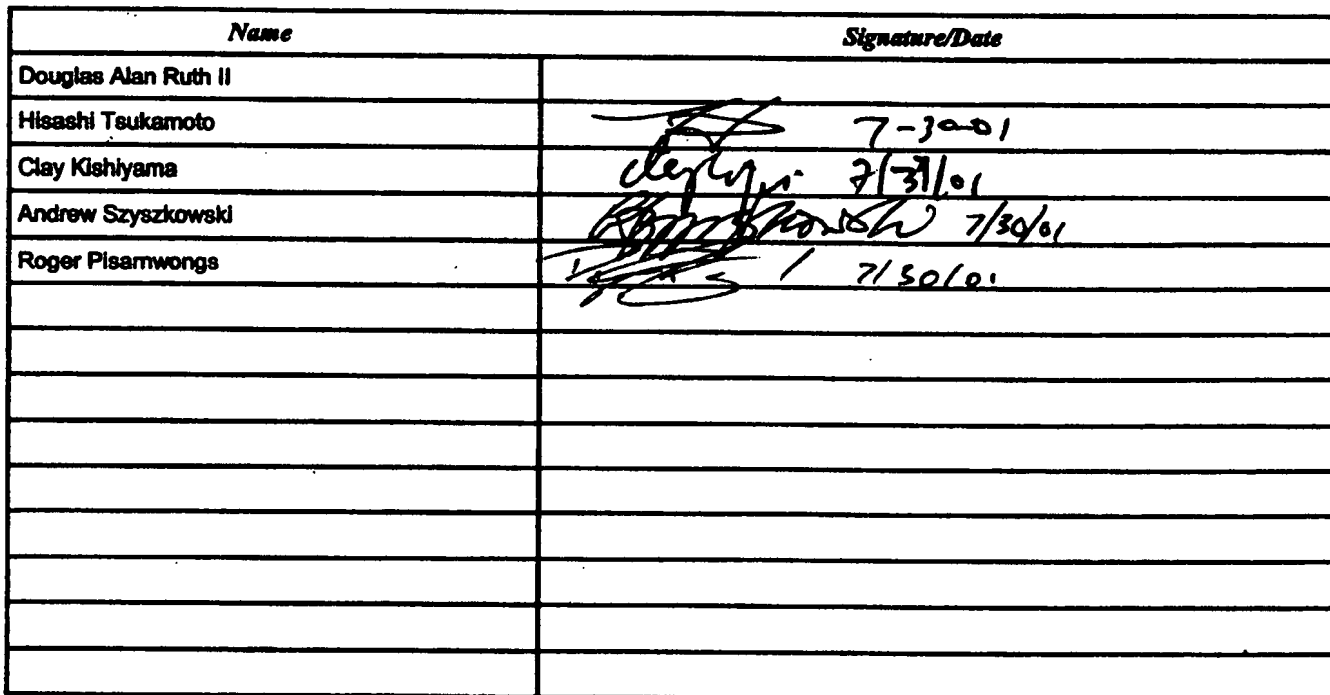 Name Signature/Date
Douglas Alan Ruth II
Hisashi Tsukamoto 7-30-01
Clay Kishiyama 7/ /01
Andrew Szyszkowski 7/30/01
Roger Pisarnwongs 7/30/01